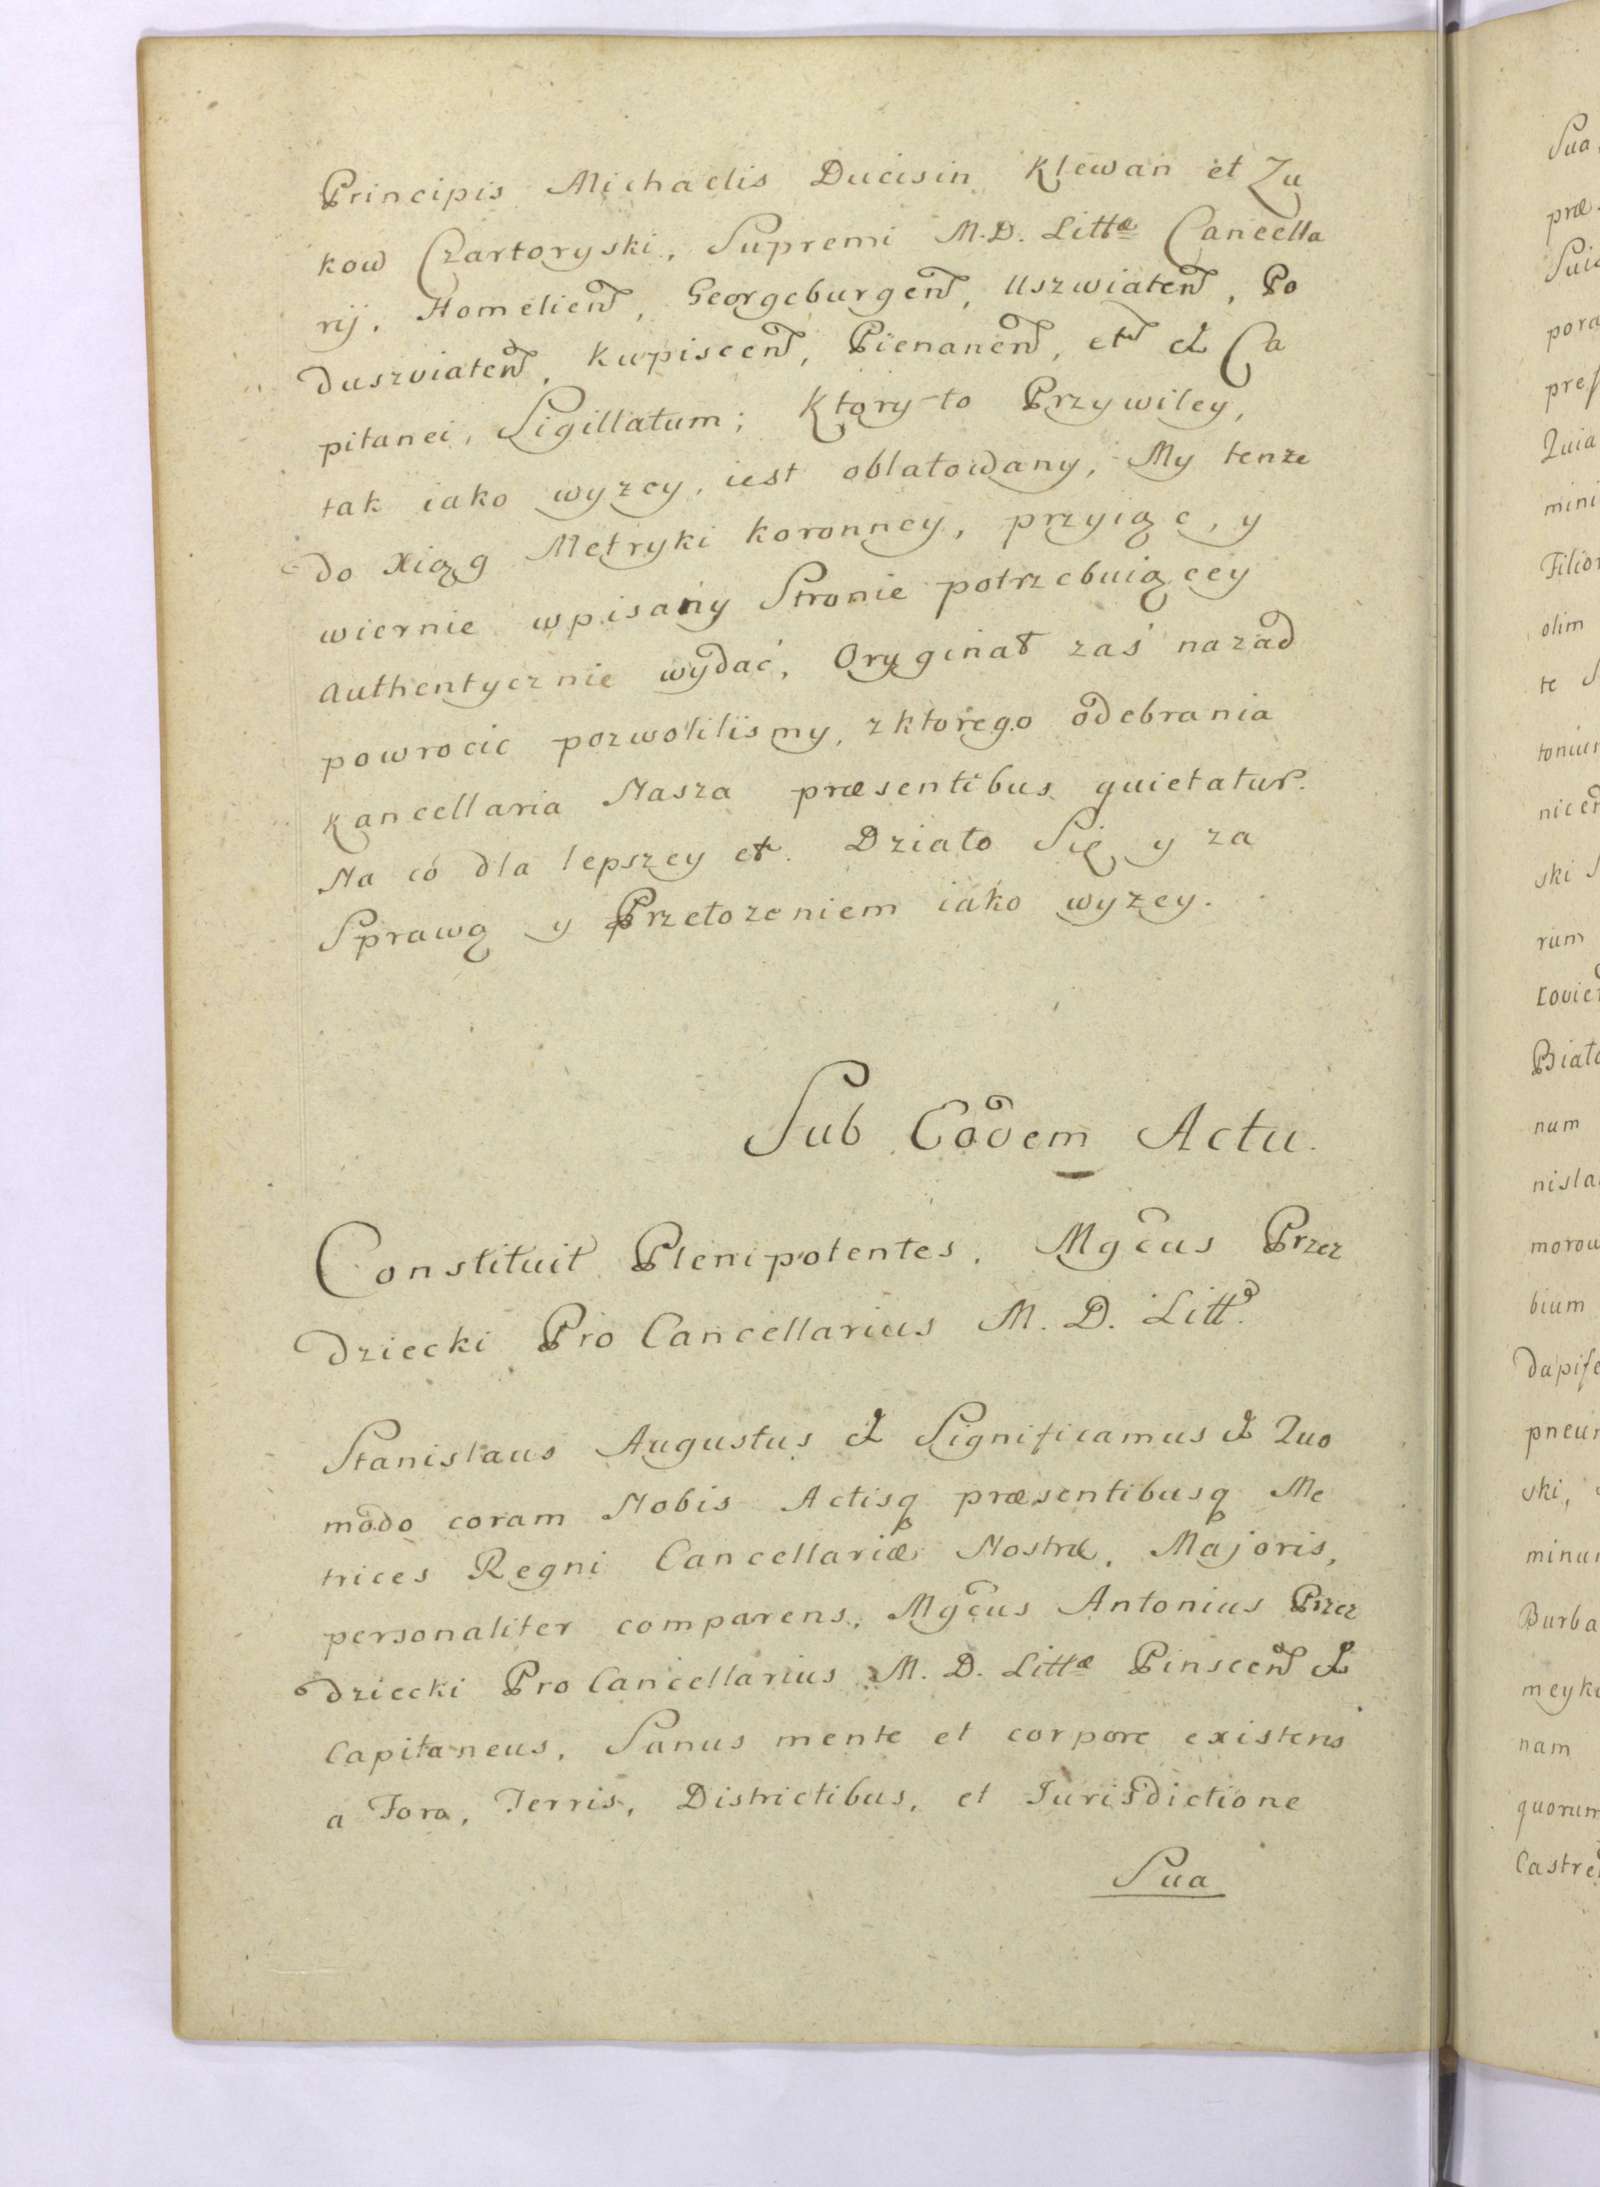 Principis Michaelis Ducis in Klewan et Zu
kow Czartoryski, Supremi M.D. Littæ Cancella
rij, Homelien, Georgeburgen, Uszwiaten, Po
duszwiaten, Kupiscen, Pienanen, etc et Ca
pitanei, Sigillatum; Ktory-to Przywiley,
tak iako wyzey, iest oblatowany, My tenze
do Xiąg Metryki Koronney, przyiąc, y
wiernie wpisany Stronie potrzebuiącey
Authentycznie wydać, Oryginał zaś nazad
powrocic pozwolilismy, z ktorego odebrania
Kancellaria Nasza præsentibus quietatur.
Na co dla lepszey etc. Działo Się y za
Sprawą y Przełozeniem iako wyzey.
Sub Eodem Actu.
Constituit Plenipotentes, Mgcus Przez
dziecki Pro Cancellarius M. D. Litt.
Stanislaus Augustus et Significamus et Quo
modo coram Nobis Actisq præsentibusq Me
trices Regni Cancellariæ Nostræ, Majoris,
personaliter comparens, Mgcus Antonius Przez
dziecki Pro Cancellarius M. D. Littæ Pinscen et
Capitaneus, Sanus mente et corpore existens
a Foro, Terris, Districtibus, et Jurisdictione
Sua
Sua
præ
pora
Quia
mini
olim
te
ski
rum
num
morow
bium
ski,
nam
quorum